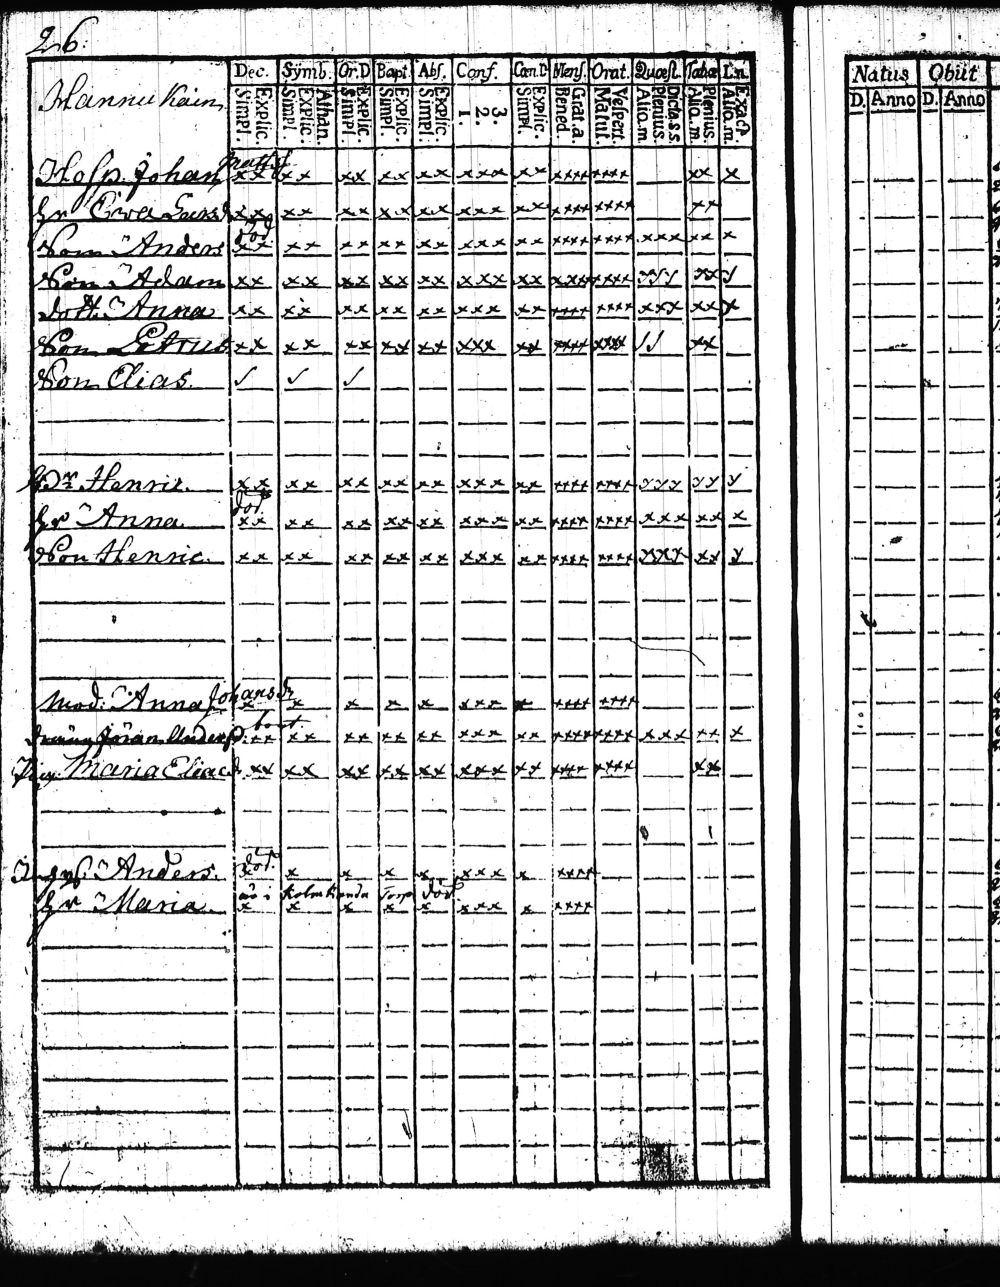 26.
Dec. Symb. Or.D Bapt. Abs. Conf. Cœn.D Mens. Orat. Quæst. Tabæ I.n.
Hannukain
Explic. Simpl. Athan. Explic. Simpl. Explic. Simpl. Explic. Simpl. Explic. Simpl. 3. 2. 1 Explic. Simpl. Grat.a Bened. Vespert. Matut. Dicta s.s. Plenius Alio.m. Plenius Alio.m Exact Alio.m
Natus Obiit
D. Anno D. Anno
Hosp. Johan Matts. xx xx xx xx xx xxx xx xxxx xxxx xx x
hr Ewa Larsd xx xx xx xx xx xxx xx xxxx xxxx xx
död
Son Anders xx xx xx xx xx xxx xx xxxx xxxx xxx xx x
Son Adam xx xx xx xx xx xxx xx xxxx xxxx yyy xx y
Dott. Anna xx xx xx xx xx xxx xx xxxx xxxx xxx xx x
Son Petrus xx xx xx xx xx xxx xx xxxx xxxx // xx
Son Elias
Br Henric. xx xx xx xx xx xxx xx xxxx xxxx yyy yy y
död
hr Anna xx xx xx xx xx xxx xx xxxx xxxx xxx xx x
Son Henric xx xx xx xx xx xxx xx xxxx xxxx xxx xx y
Mod. Anna Johansdr x x x x x xxx x xxxx xxxx
bort
Dräng Jöran Anders. xx xx xx xx xx xxx xx xxxx xxxx xxx xx x
Pig. Maria Eliaed. xx xx xx xx xx xxx xx xxxx xxxx xx
död
Anders. x x x x x xxx x xxxx
Torp död
hr Maria x x x x x xxx x xxxx